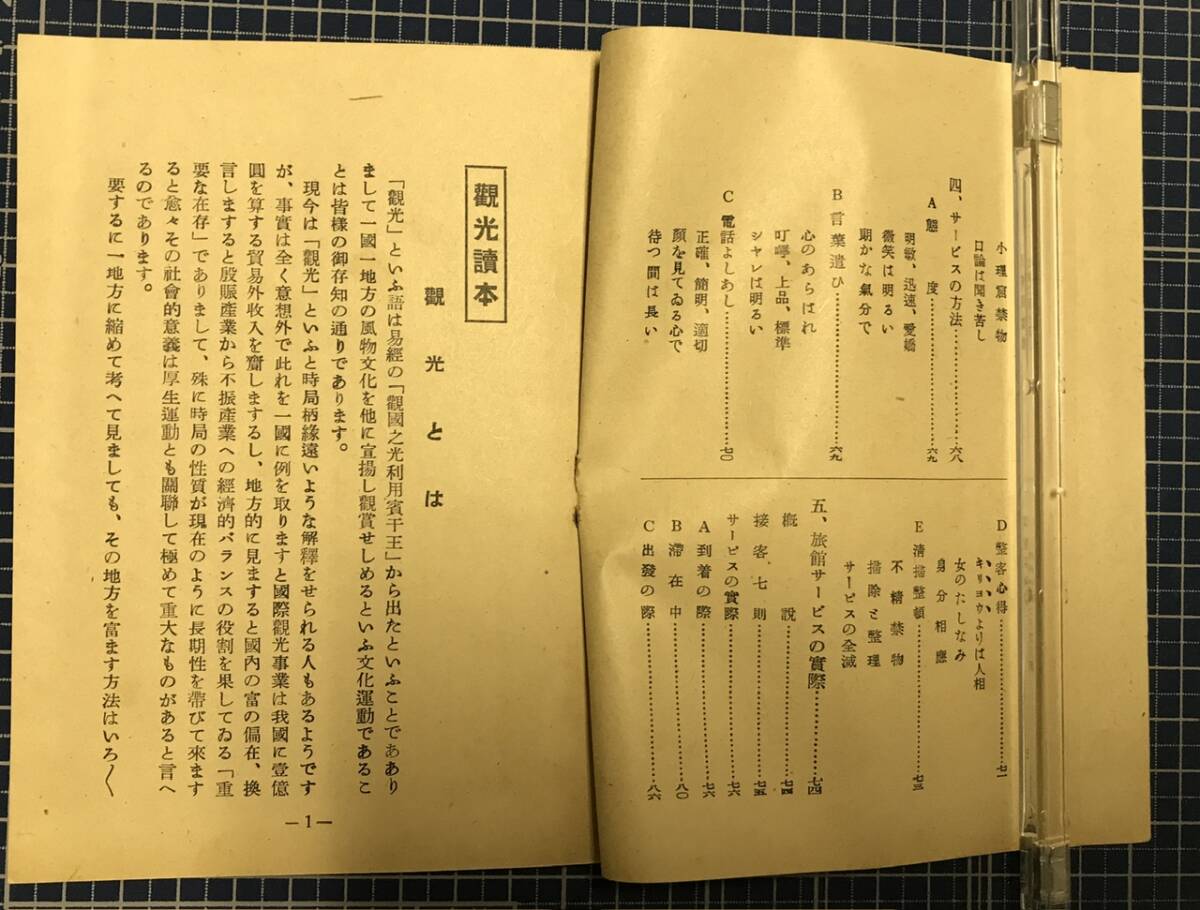 小理窟禁物
口論は聞き苦し
四、サービスの方法……………六八
A 態度……………六九
明敏、迅速、愛嬌
微笑は明るい
期かな氣分で
B 言葉遣ひ……………六九
心のあらはれ
叮嚀、上品、標準
シヤレは明るい
C 電話よしあし……………七〇
正確、簡明、適切
顏を見てゐる心で
待つ間は長い
D 整客心得……………七一
キリヨウよりは人相
女のたしなみ
身分相應
E 清掃整頓……………七三
不精禁物
掃除と整理
サービスの全滅
五、旅館サービスの實際……………七四
概說……………七四
接客七則……………七五
サービスの實際……………七六
A 到着の際……………七六
B 滯在中……………八〇
C 出發の際……………八六
觀光讀本
觀光とは
「觀光」といふ語は易經の「觀國之光利用賓于王」から出たといふことでああり
まして一國一地方の風物文化を他に宣揚し觀賞せしめるといふ文化運動であるこ
とは皆樣の御存知の通りであります。
現今は「觀光」といふと時局柄緣遠いような解釋をせられる人もあるようです
が、事實は全く意想外で此れを一國に例を取りますと國際觀光事業は我國に壹億
圓を算する貿易外收入を齎しまするし、地方的に見ますると國內の富の偏在、換
言しますると殷賑產業から不振產業への經濟的バランスの役割を果してゐる「重
要な在存」でありまして、殊に時局の性質が現在のように長期性を帶びて來ます
ると愈々その社會的意義は厚生運動とも關聯して極めて重大なものがあると言へ
るのであります。
要するに一地方に縮めて考へて見ましても、その地方を富ます方法はいろ〱
—1—